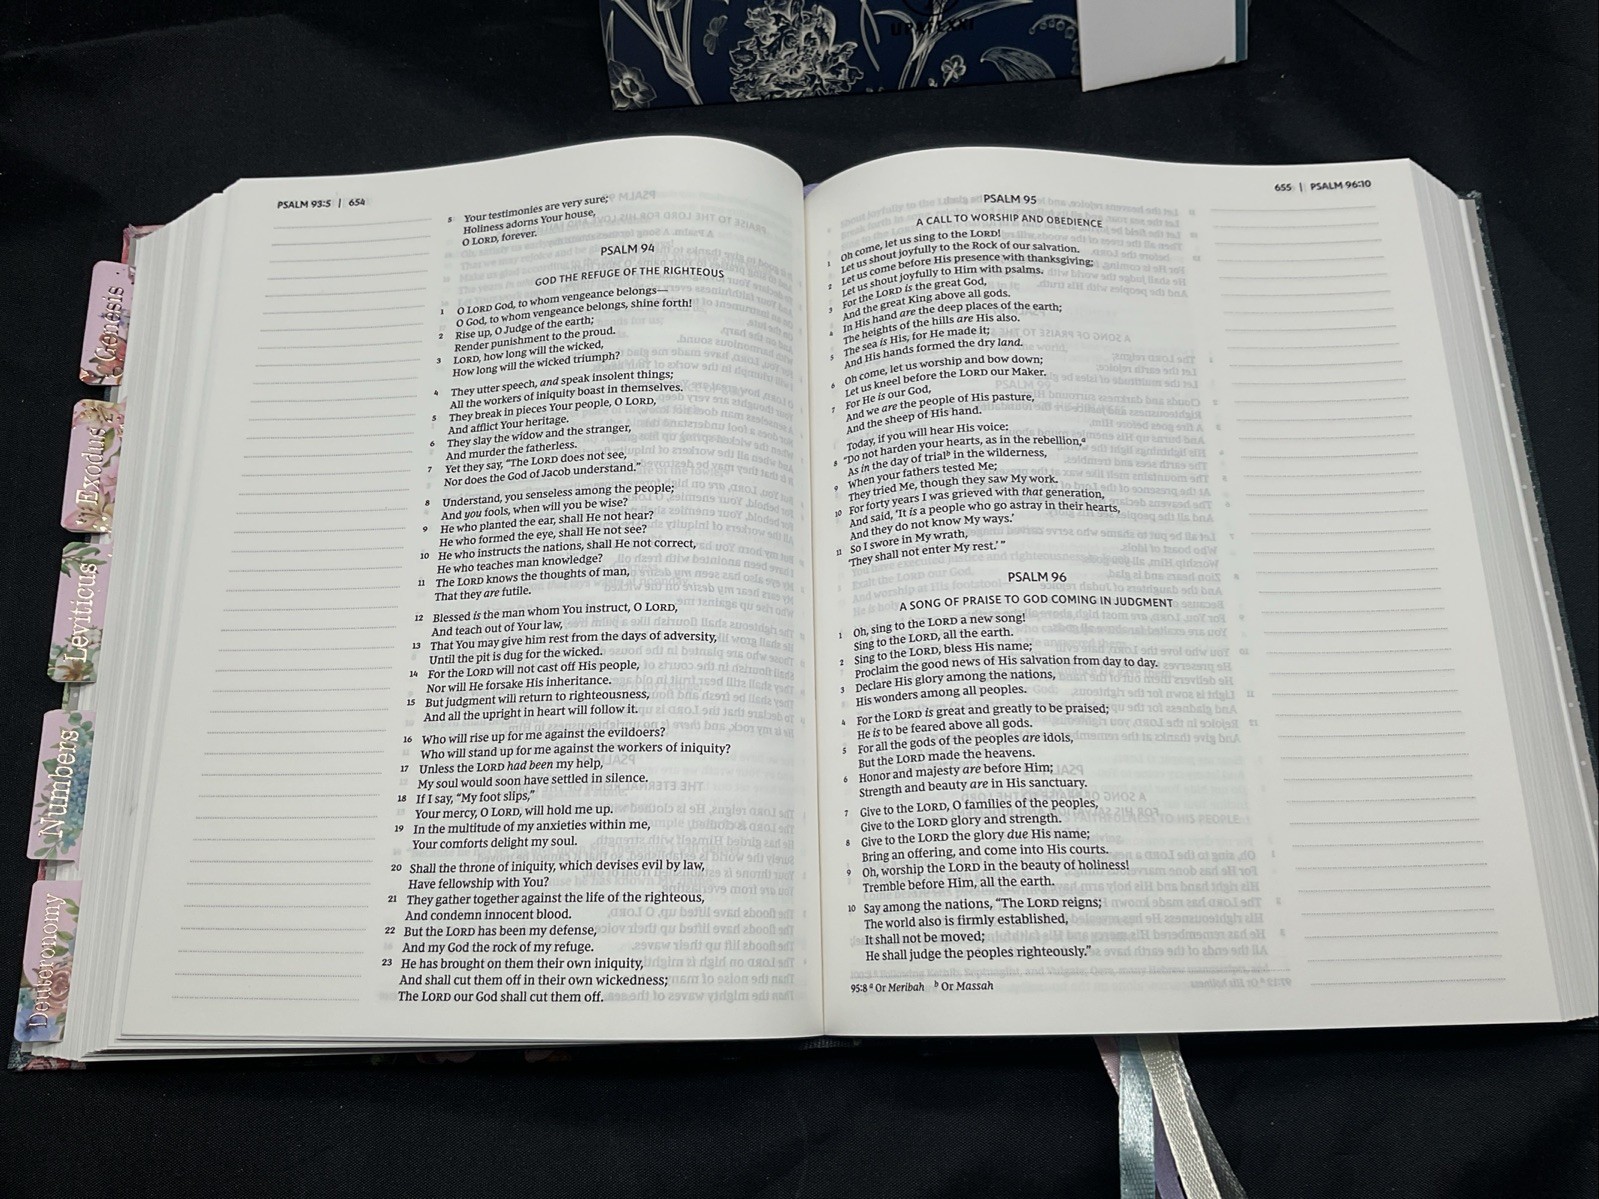 Genesis
Exodus
Leviticus
Numbers
Deuteronomy
PSALM 93:5 | 654
5 Your testimonies are very sure;
Holiness adorns Your house,
O LORD, forever.
PSALM 94
GOD THE REFUGE OF THE RIGHTEOUS
1 O LORD God, to whom vengeance belongs—
O God, to whom vengeance belongs, shine forth!
2 Rise up, O Judge of the earth;
Render punishment to the proud.
3 LORD, how long will the wicked,
How long will the wicked triumph?
4 They utter speech, and speak insolent things;
All the workers of iniquity boast in themselves.
5 They break in pieces Your people, O LORD,
And afflict Your heritage.
6 They slay the widow and the stranger,
And murder the fatherless.
7 Yet they say, “The LORD does not see,
Nor does the God of Jacob understand.”
8 Understand, you senseless among the people;
And you fools, when will you be wise?
9 He who planted the ear, shall He not hear?
He who formed the eye, shall He not see?
10 He who instructs the nations, shall He not correct,
He who teaches man knowledge?
11 The LORD knows the thoughts of man,
That they are futile.
12 Blessed is the man whom You instruct, O LORD,
And teach out of Your law,
13 That You may give him rest from the days of adversity,
Until the pit is dug for the wicked.
14 For the LORD will not cast off His people,
Nor will He forsake His inheritance.
15 But judgment will return to righteousness,
And all the upright in heart will follow it.
16 Who will rise up for me against the evildoers?
Who will stand up for me against the workers of iniquity?
17 Unless the LORD had been my help,
My soul would soon have settled in silence.
18 If I say, “My foot slips,”
Your mercy, O LORD, will hold me up.
19 In the multitude of my anxieties within me,
Your comforts delight my soul.
20 Shall the throne of iniquity, which devises evil by law,
Have fellowship with You?
21 They gather together against the life of the righteous,
And condemn innocent blood.
22 But the LORD has been my defense,
And my God the rock of my refuge.
23 He has brought on them their own iniquity,
And shall cut them off in their own wickedness;
The LORD our God shall cut them off.
655 | PSALM 96:10
PSALM 95
A CALL TO WORSHIP AND OBEDIENCE
1 Oh come, let us sing to the LORD!
Let us shout joyfully to the Rock of our salvation.
2 Let us come before His presence with thanksgiving;
Let us shout joyfully to Him with psalms.
3 For the LORD is the great God,
And the great King above all gods.
4 In His hand are the deep places of the earth;
The heights of the hills are His also.
5 The sea is His, for He made it;
And His hands formed the dry land.
6 Oh come, let us worship and bow down;
Let us kneel before the LORD our Maker.
7 For He is our God,
And we are the people of His pasture,
And the sheep of His hand.
Today, if you will hear His voice:
8 “Do not harden your hearts, as in the rebellion,a
As in the day of trialb in the wilderness,
9 When your fathers tested Me;
They tried Me, though they saw My work.
10 For forty years I was grieved with that generation,
And said, ‘It is a people who go astray in their hearts,
And they do not know My ways.’
11 So I swore in My wrath,
‘They shall not enter My rest.’ ”
PSALM 96
A SONG OF PRAISE TO GOD COMING IN JUDGMENT
1 Oh, sing to the LORD a new song!
Sing to the LORD, all the earth.
2 Sing to the LORD, bless His name;
Proclaim the good news of His salvation from day to day.
3 Declare His glory among the nations,
His wonders among all peoples.
4 For the LORD is great and greatly to be praised;
He is to be feared above all gods.
5 For all the gods of the peoples are idols,
But the LORD made the heavens.
6 Honor and majesty are before Him;
Strength and beauty are in His sanctuary.
7 Give to the LORD, O families of the peoples,
Give to the LORD glory and strength.
8 Give to the LORD the glory due His name;
Bring an offering, and come into His courts.
9 Oh, worship the LORD in the beauty of holiness!
Tremble before Him, all the earth.
10 Say among the nations, “The LORD reigns;
The world also is firmly established,
It shall not be moved;
He shall judge the peoples righteously.”
95:8 a Or Meribah b Or Massah